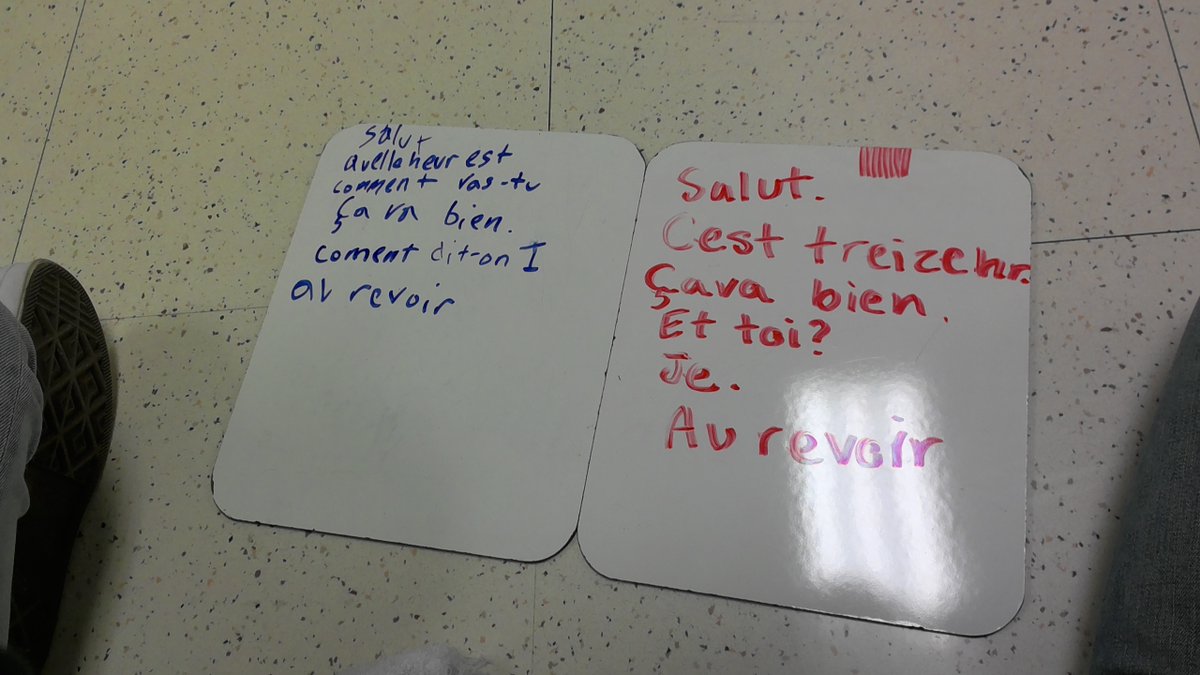 Salut
quelle heur est
comment vas-tu
Ça va bien.
coment dit-on I
au revoir
Salut.
C'est treizehr.
Çava bien.
Et toi?
Je.
Au revoir